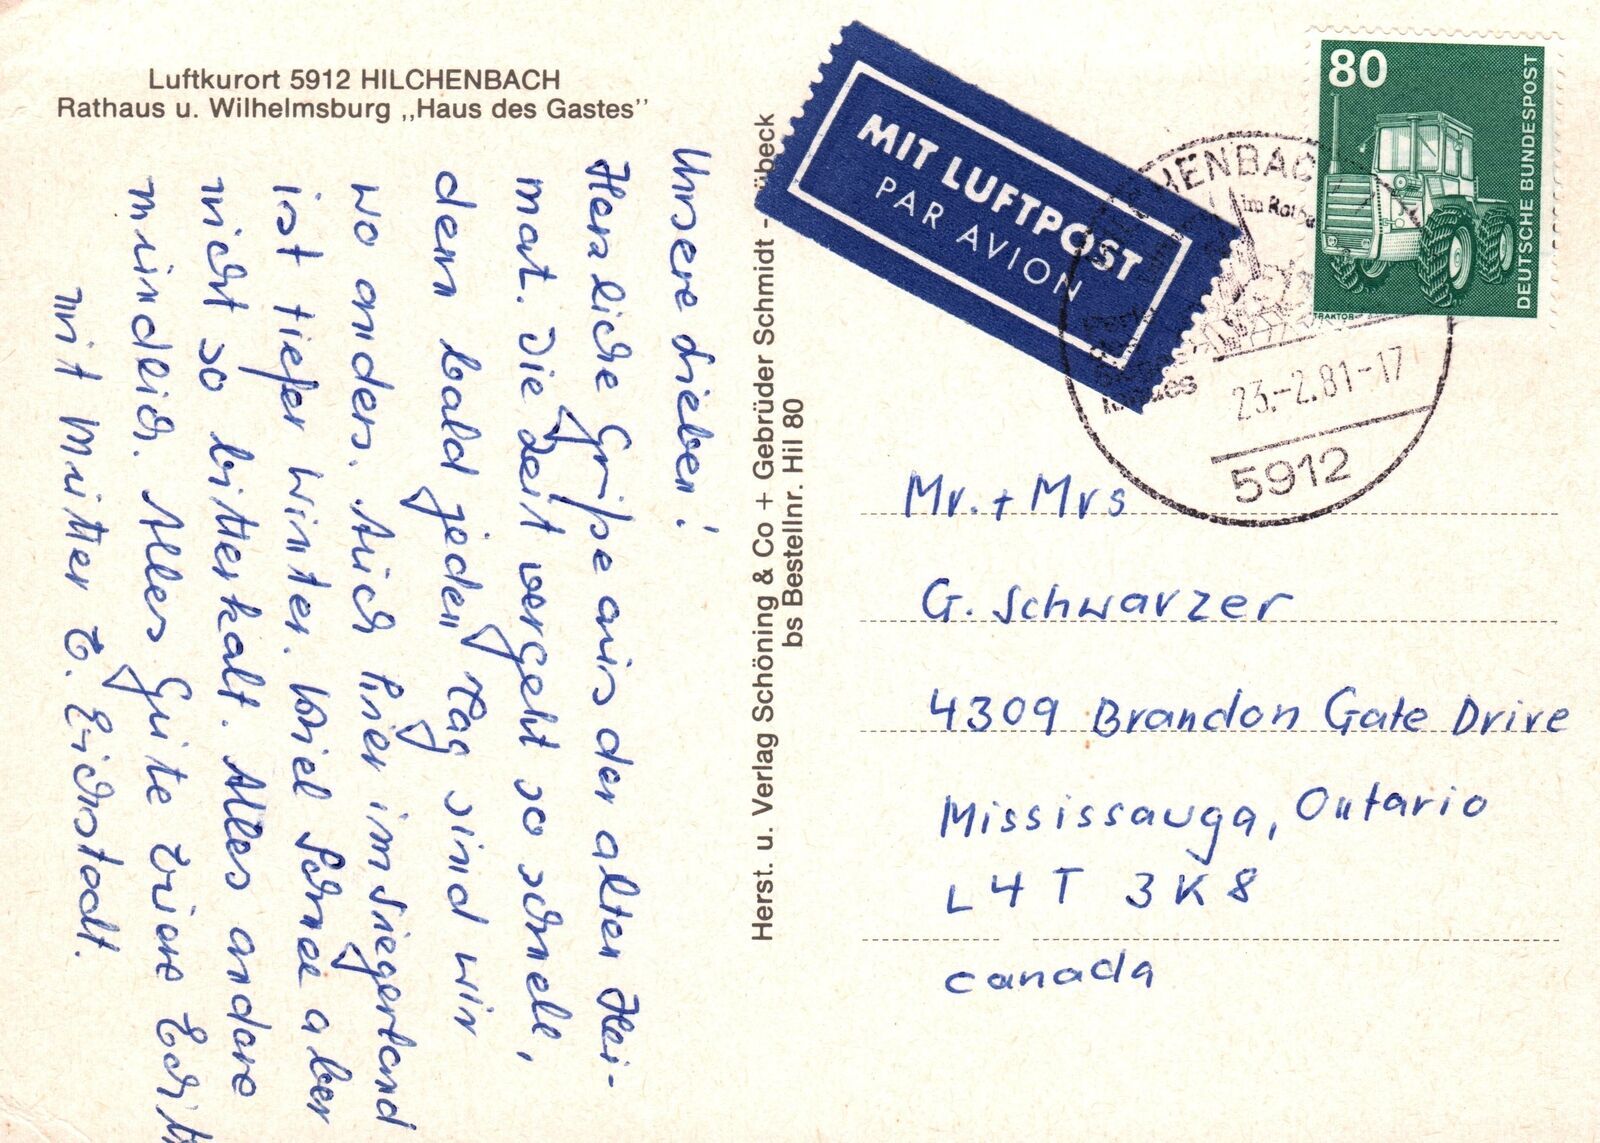 Luftkurort 5912 HILCHENBACH
Rathaus u. Wilhelmsburg „Haus des Gastes"
Unsere Lieben!
Herzliche Grüße aus der alten Hei-
mat. Die Zeit vergeht so schnell,
denn bald jeden Tag sind wir
wo anders. Auch hier im Siegerland
ist tiefer Winter. Viel Schnee aber
nicht so bitterkalt. Alles andere
mündlich. Alles Gute Eure Edith
mit Mutter E. Eichstädt.
Herst. u. Verlag Schöning & Co + Gebrüder Schmidt - übeck
bs Bestellnr. Hil 80
MIT LUFTPOST
PAR AVION
80
DEUTSCHE BUNDESPOST
TRAKTOR
HENBAC
im Rotha
23.-2.81-17
5912
Mr. + Mrs
G. Schwarzer
4309 Brandon Gate Drive
Mississauga, Ontario
L4T 3K8
Canada